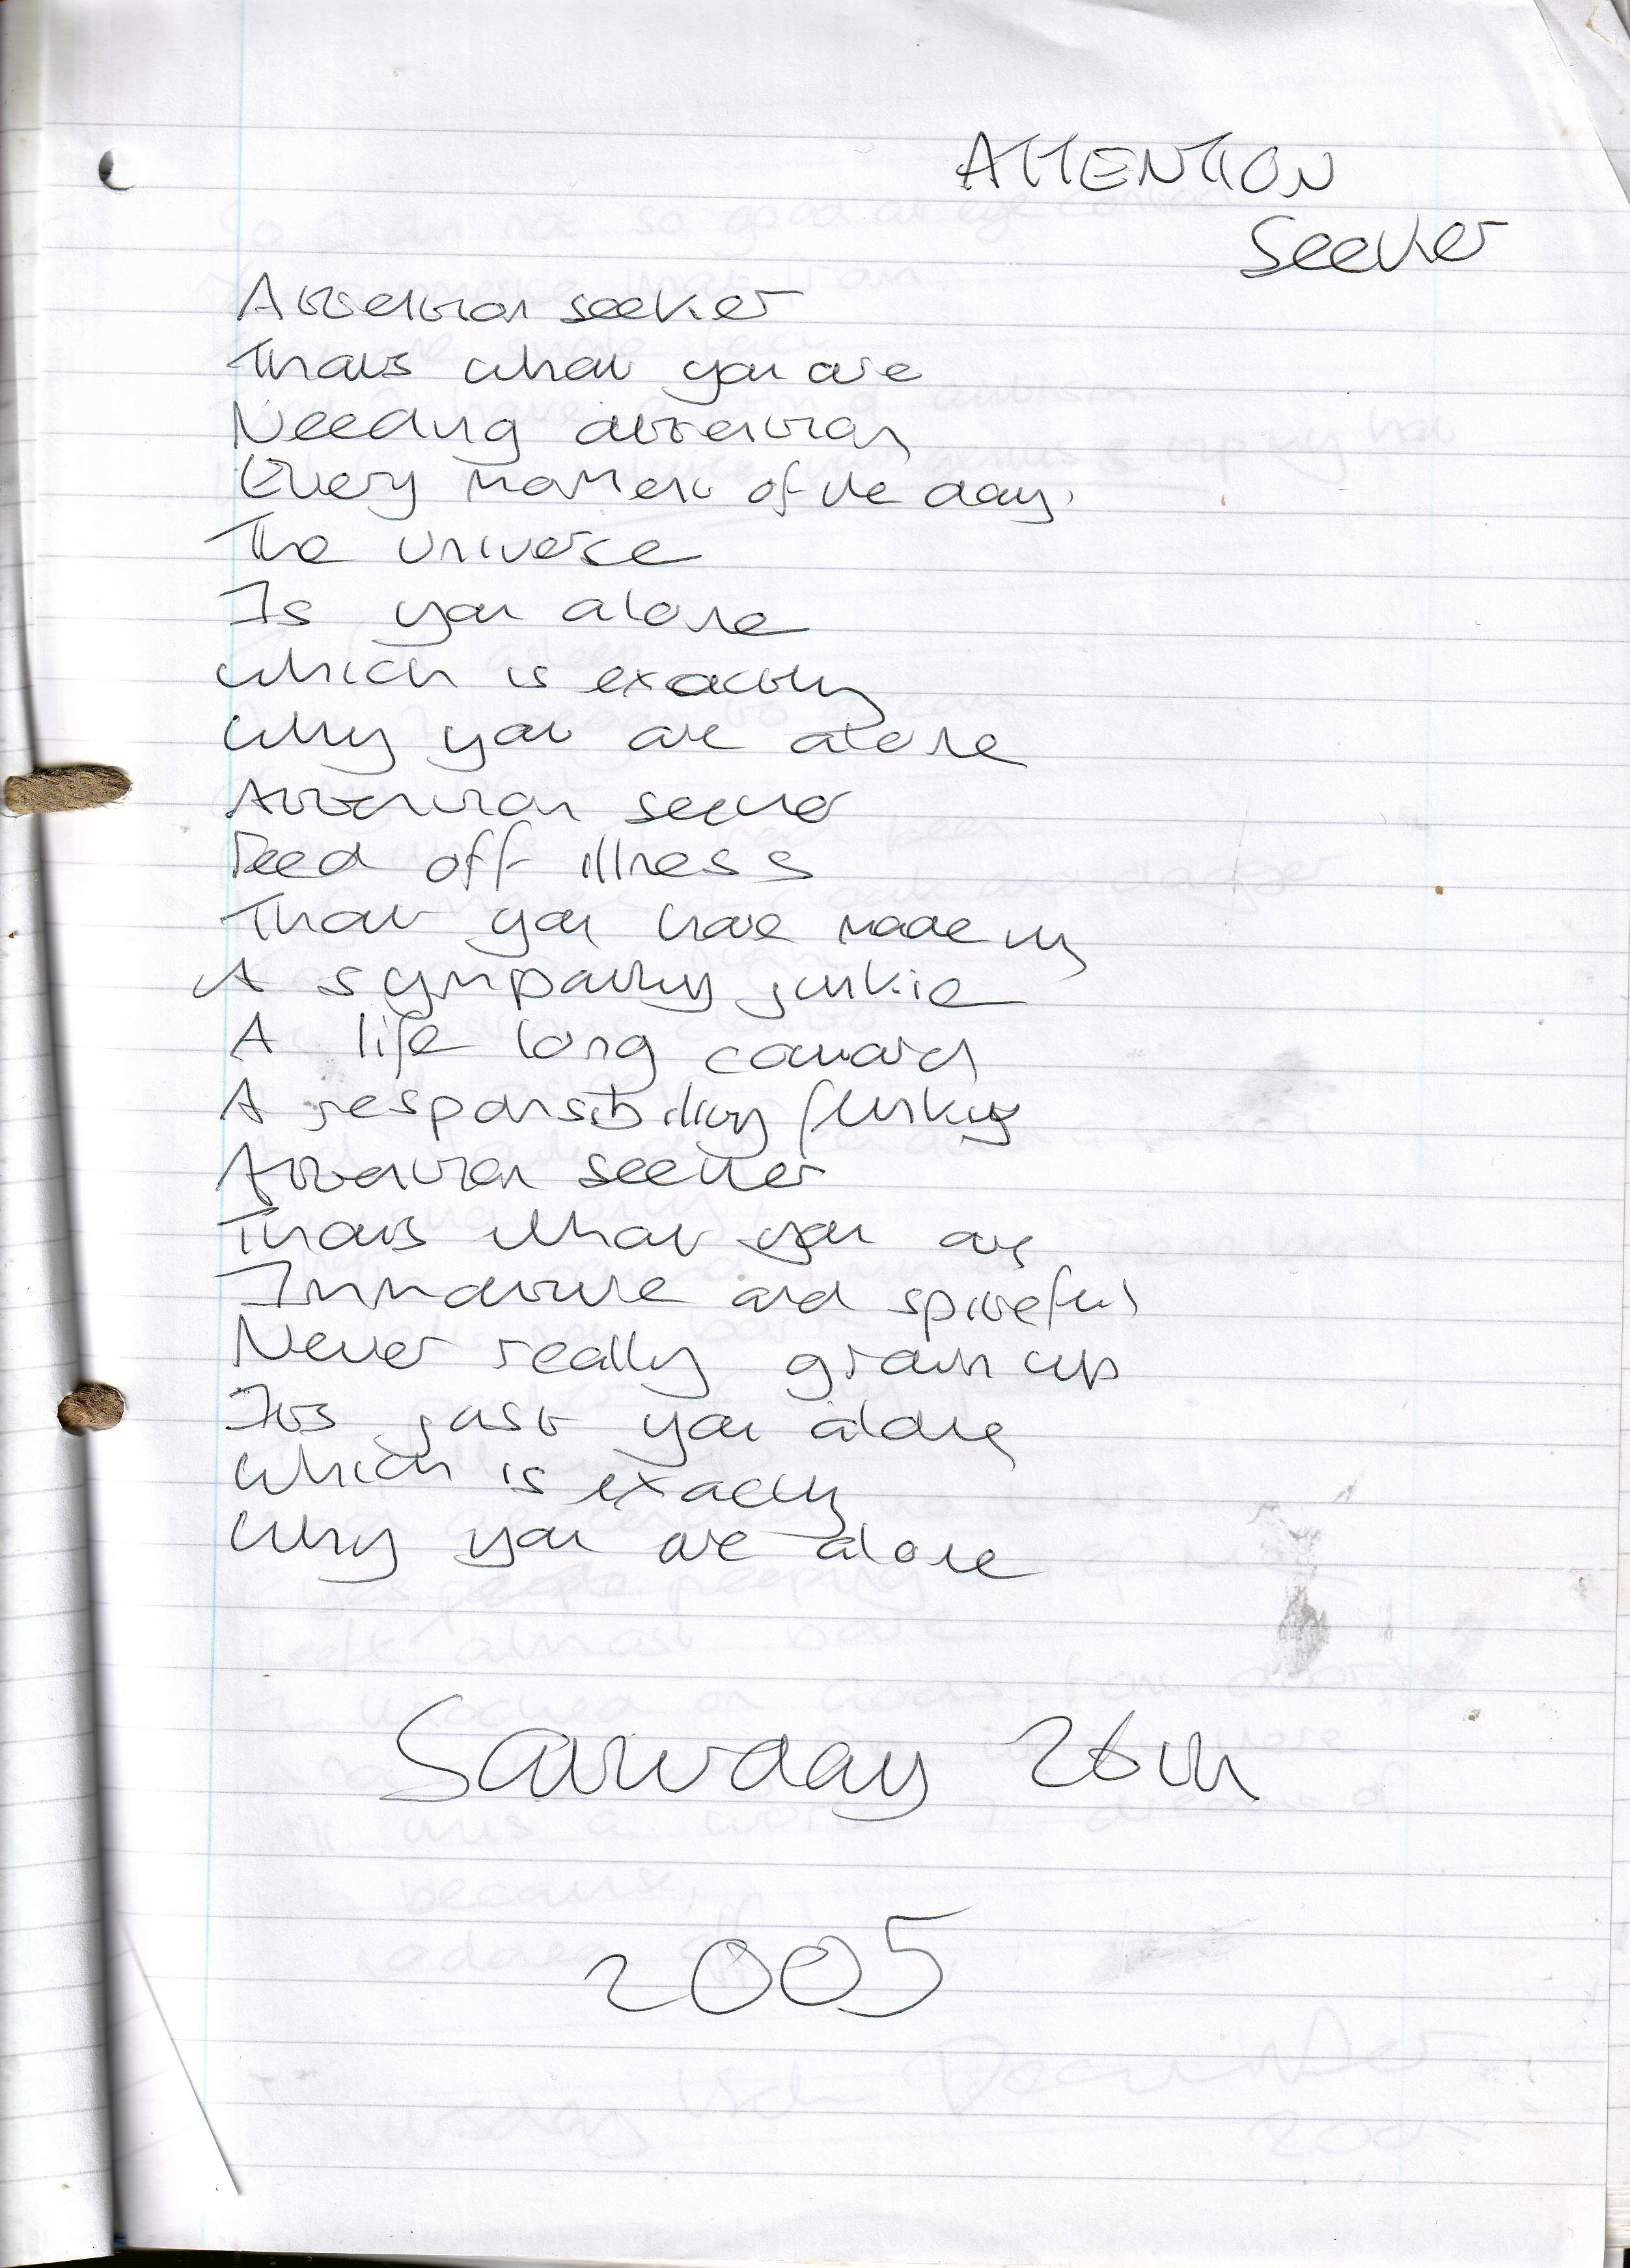 ATTENTION
Seeker
Attention seeker
Thats what you are
Needing attention
Every moment of the day.
The universe
Is you alone
which is exactly
Why you are alone
Attention seeker
Feed off illness
That you have made up
A sympathy junkie
A life long coward
A responsibility flunky
Attention seeker
Thats what you are
Immature and spiteful
Never really grown up
Its just you alone
Which is exactly
Why you are alone
Saturday 26th
2005